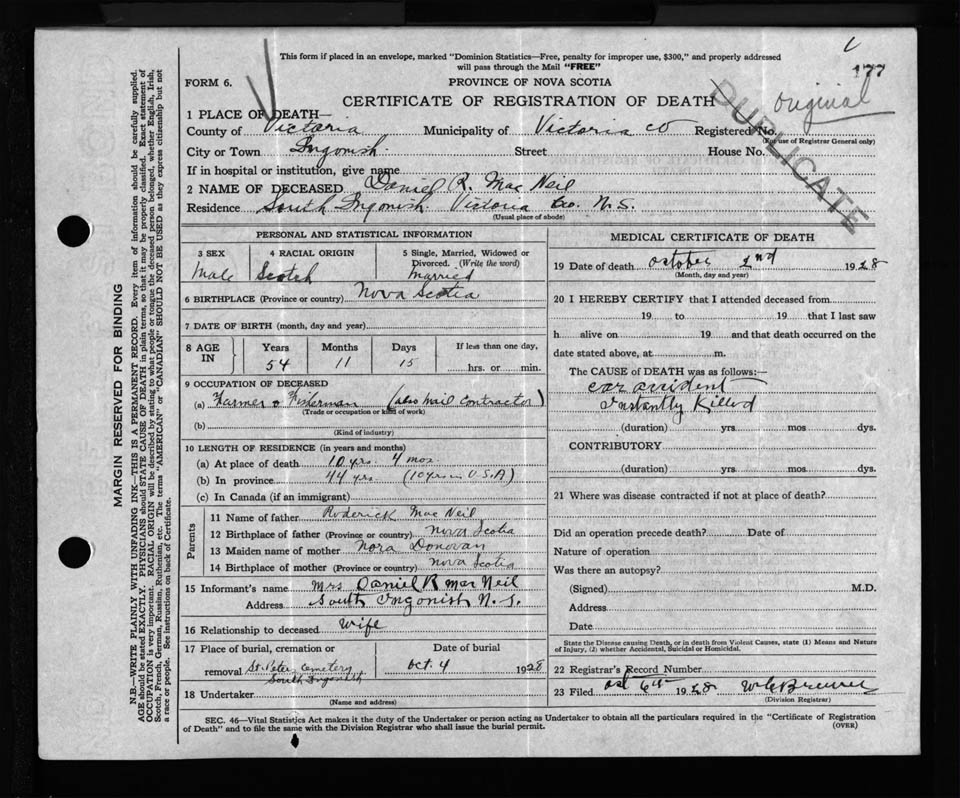 This form if placed in an envelope, marked "Dominion Statistics—Free, penalty for improper use, $300," and properly addressed
will pass through the Mail "FREE"
177
FORM 6.
PROVINCE OF NOVA SCOTIA
CERTIFICATE OF REGISTRATION OF DEATH
DUPLICATE
original
1 PLACE OF DEATH—
County of Victoria Municipality of Victoria Co Registered No.
(For use of Registrar General only)
City or Town Ingonish. Street House No.
If in hospital or institution, give name
2 NAME OF DECEASED Daniel R. Mac Neil
Residence South Ingonish. Victoria Co. N.S.
(Usual place of abode)
PERSONAL AND STATISTICAL INFORMATION
3 SEX 4 RACIAL ORIGIN 5 Single, Married, Widowed or
Divorced. (Write the word)
Male Scotch Married
6 BIRTHPLACE (Province or country) Nova Scotia
7 DATE OF BIRTH (month, day and year)
8 AGE IN Years Months Days If less than one day,
54 11 15 hrs. or min.
9 OCCUPATION OF DECEASED
(a) Farmer & Fisherman (also Mail Contractor)
(Trade or occupation or kind of work)
(b)
(Kind of industry)
10 LENGTH OF RESIDENCE (in years and months)
(a) At place of death 10 yrs. 4 mos.
(b) In province 44 yrs. (10 yrs in U.S.A)
(c) In Canada (if an immigrant)
Parents
11 Name of father Roderick Mac Neil
12 Birthplace of father (Province or country) Nova Scotia
13 Maiden name of mother Nora Donovan
14 Birthplace of mother (Province or country) Nova Scotia
15 Informant's name Mrs Daniel R Mac Neil
Address South Ingonish N.S.
16 Relationship to deceased Wife
17 Place of burial, cremation or Date of burial
removal St. Peters Cemetery Oct. 4 1928
South Ingonish
18 Undertaker
(Name and address)
MEDICAL CERTIFICATE OF DEATH
19 Date of death October 2nd 1928
(Month, day and year)
20 I HEREBY CERTIFY that I attended deceased from
19 to 19 that I last saw
h alive on 19 and that death occurred on the
date stated above, at m.
The CAUSE OF DEATH was as follows:—
car accident
Instantly Killed
(duration) yrs. mos dys.
CONTRIBUTORY
(duration) yrs. mos dys.
21 Where was disease contracted if not at place of death?
Did an operation precede death? Date of
Nature of operation
Was there an autopsy?
(Signed) M.D.
Address
Date
State the Disease causing Death, or in death from Violent Causes, state (1) Means and Nature
of Injury, (2) whether Accidental, Suicidal or Homicidal.
22 Registrar's Record Number
23 Filed Oct 6th 1928 W G Brewer
(Division Registrar)
SEC. 46—Vital Statistics Act makes it the duty of the Undertaker or person acting as Undertaker to obtain all the particulars required in the "Certificate of Registration
of Death" and to file the same with the Division Registrar who shall issue the burial permit. (OVER)
MARGIN RESERVED FOR BINDING
N.B.—WRITE PLAINLY WITH UNFADING INK—THIS IS A PERMANENT RECORD. Every item of information should be carefully supplied.
AGE should be stated EXACTLY. PHYSICIANS should STATE CAUSE OF DEATH in plain terms, so that it may be properly classified. Exact statement of
OCCUPATION is very important. RACIAL ORIGIN will be described by stating to what people or tongue the deceased person belonged, whether English, Irish,
Scotch, French, German, Russian, Ruthenian, etc. The terms "AMERICAN" or "CANADIAN" SHOULD NOT BE USED as they express citizenship but not
a race or people. See instructions on back of Certificate.